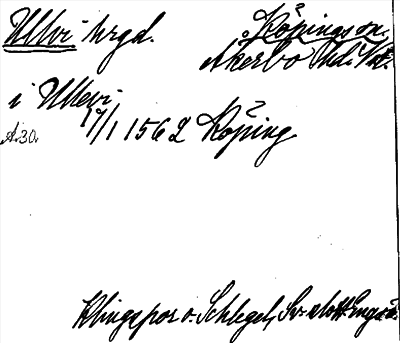 Ullvi hrgd. Köpings sn.
Åkerbo hd. Vstm.
i Ullevi
17/1 1562 Köping
A:30.
Klingspor o. Schlegel, Sv. slott